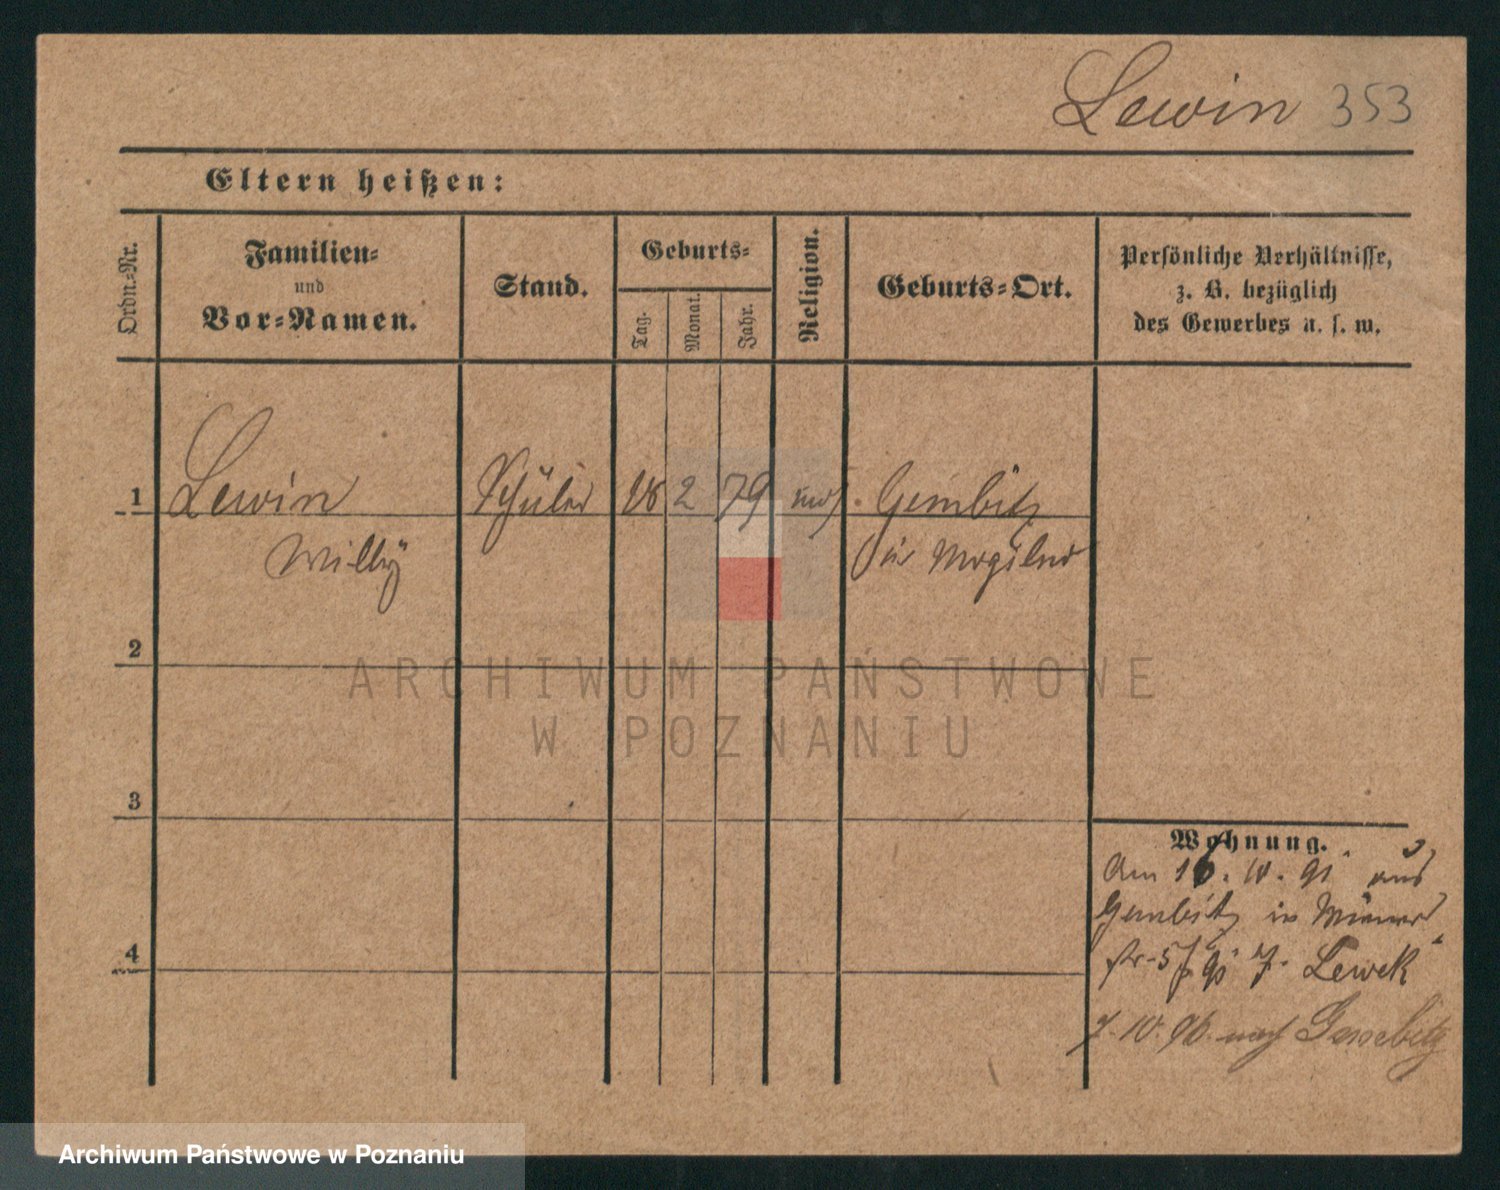 Lewin 353
Eltern heißen:
Ordn.-Nr.
Familien-
und
Vor-Namen.
Stand.
Geburts-
Tag.
Monat.
Jahr.
Religion.
Geburts-Ort.
Persönliche Verhältnisse,
z. B. bezüglich
des Gewerbes u. s. w.
1 Lewin Schüler 18 2 79 mos. Gembitz
Willy in Mogilno
2
3
4
Wohnung.
Am 16. IV. 91 aus
Gembitz in
str. 5 Lewek
7. 10. 96. nach Gembitz
ARCHIWUM PAŃSTWOWE
W POZNANIU
Archiwum Państwowe w Poznaniu